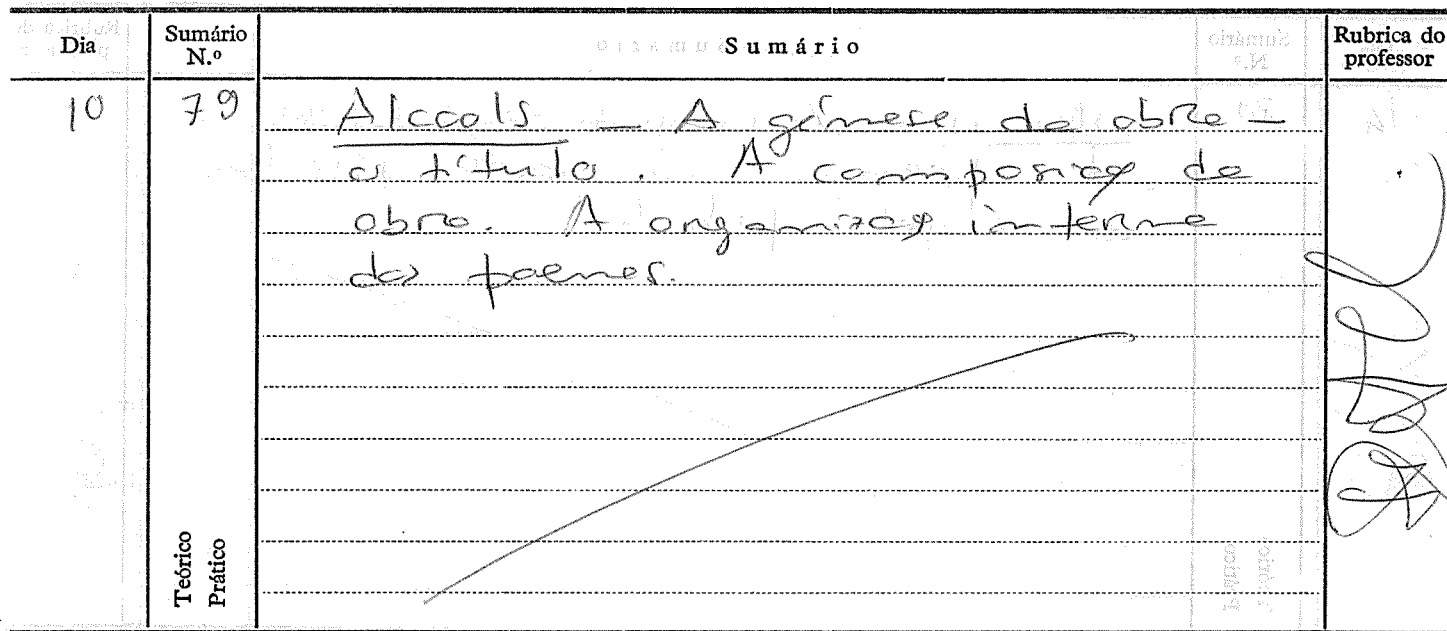 Dia
Sumário N.º
Sumário
Rubrica do professor
10
79
Alcools — A génese da obra —
o título. A composição da
obra. A organização interna
dos poemas.
Teórico
Prático